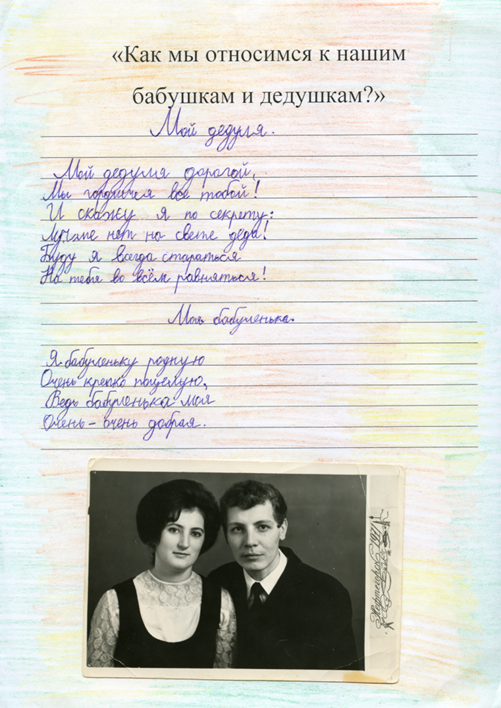 «Как мы относимся к нашим
бабушкам и дедушкам?»
Мой дедуля.
Мой дедуля дорогой,
Мы гордимся все тобой!
И скажу я по секрету:
Лучше нет на свете деда!
Буду я всегда стараться
На тебя во всём равняться!
Моя бабуленька
Я бабуленьку родную
Очень крепко поцелую,
Ведь бабуленька моя
Очень-очень добрая.